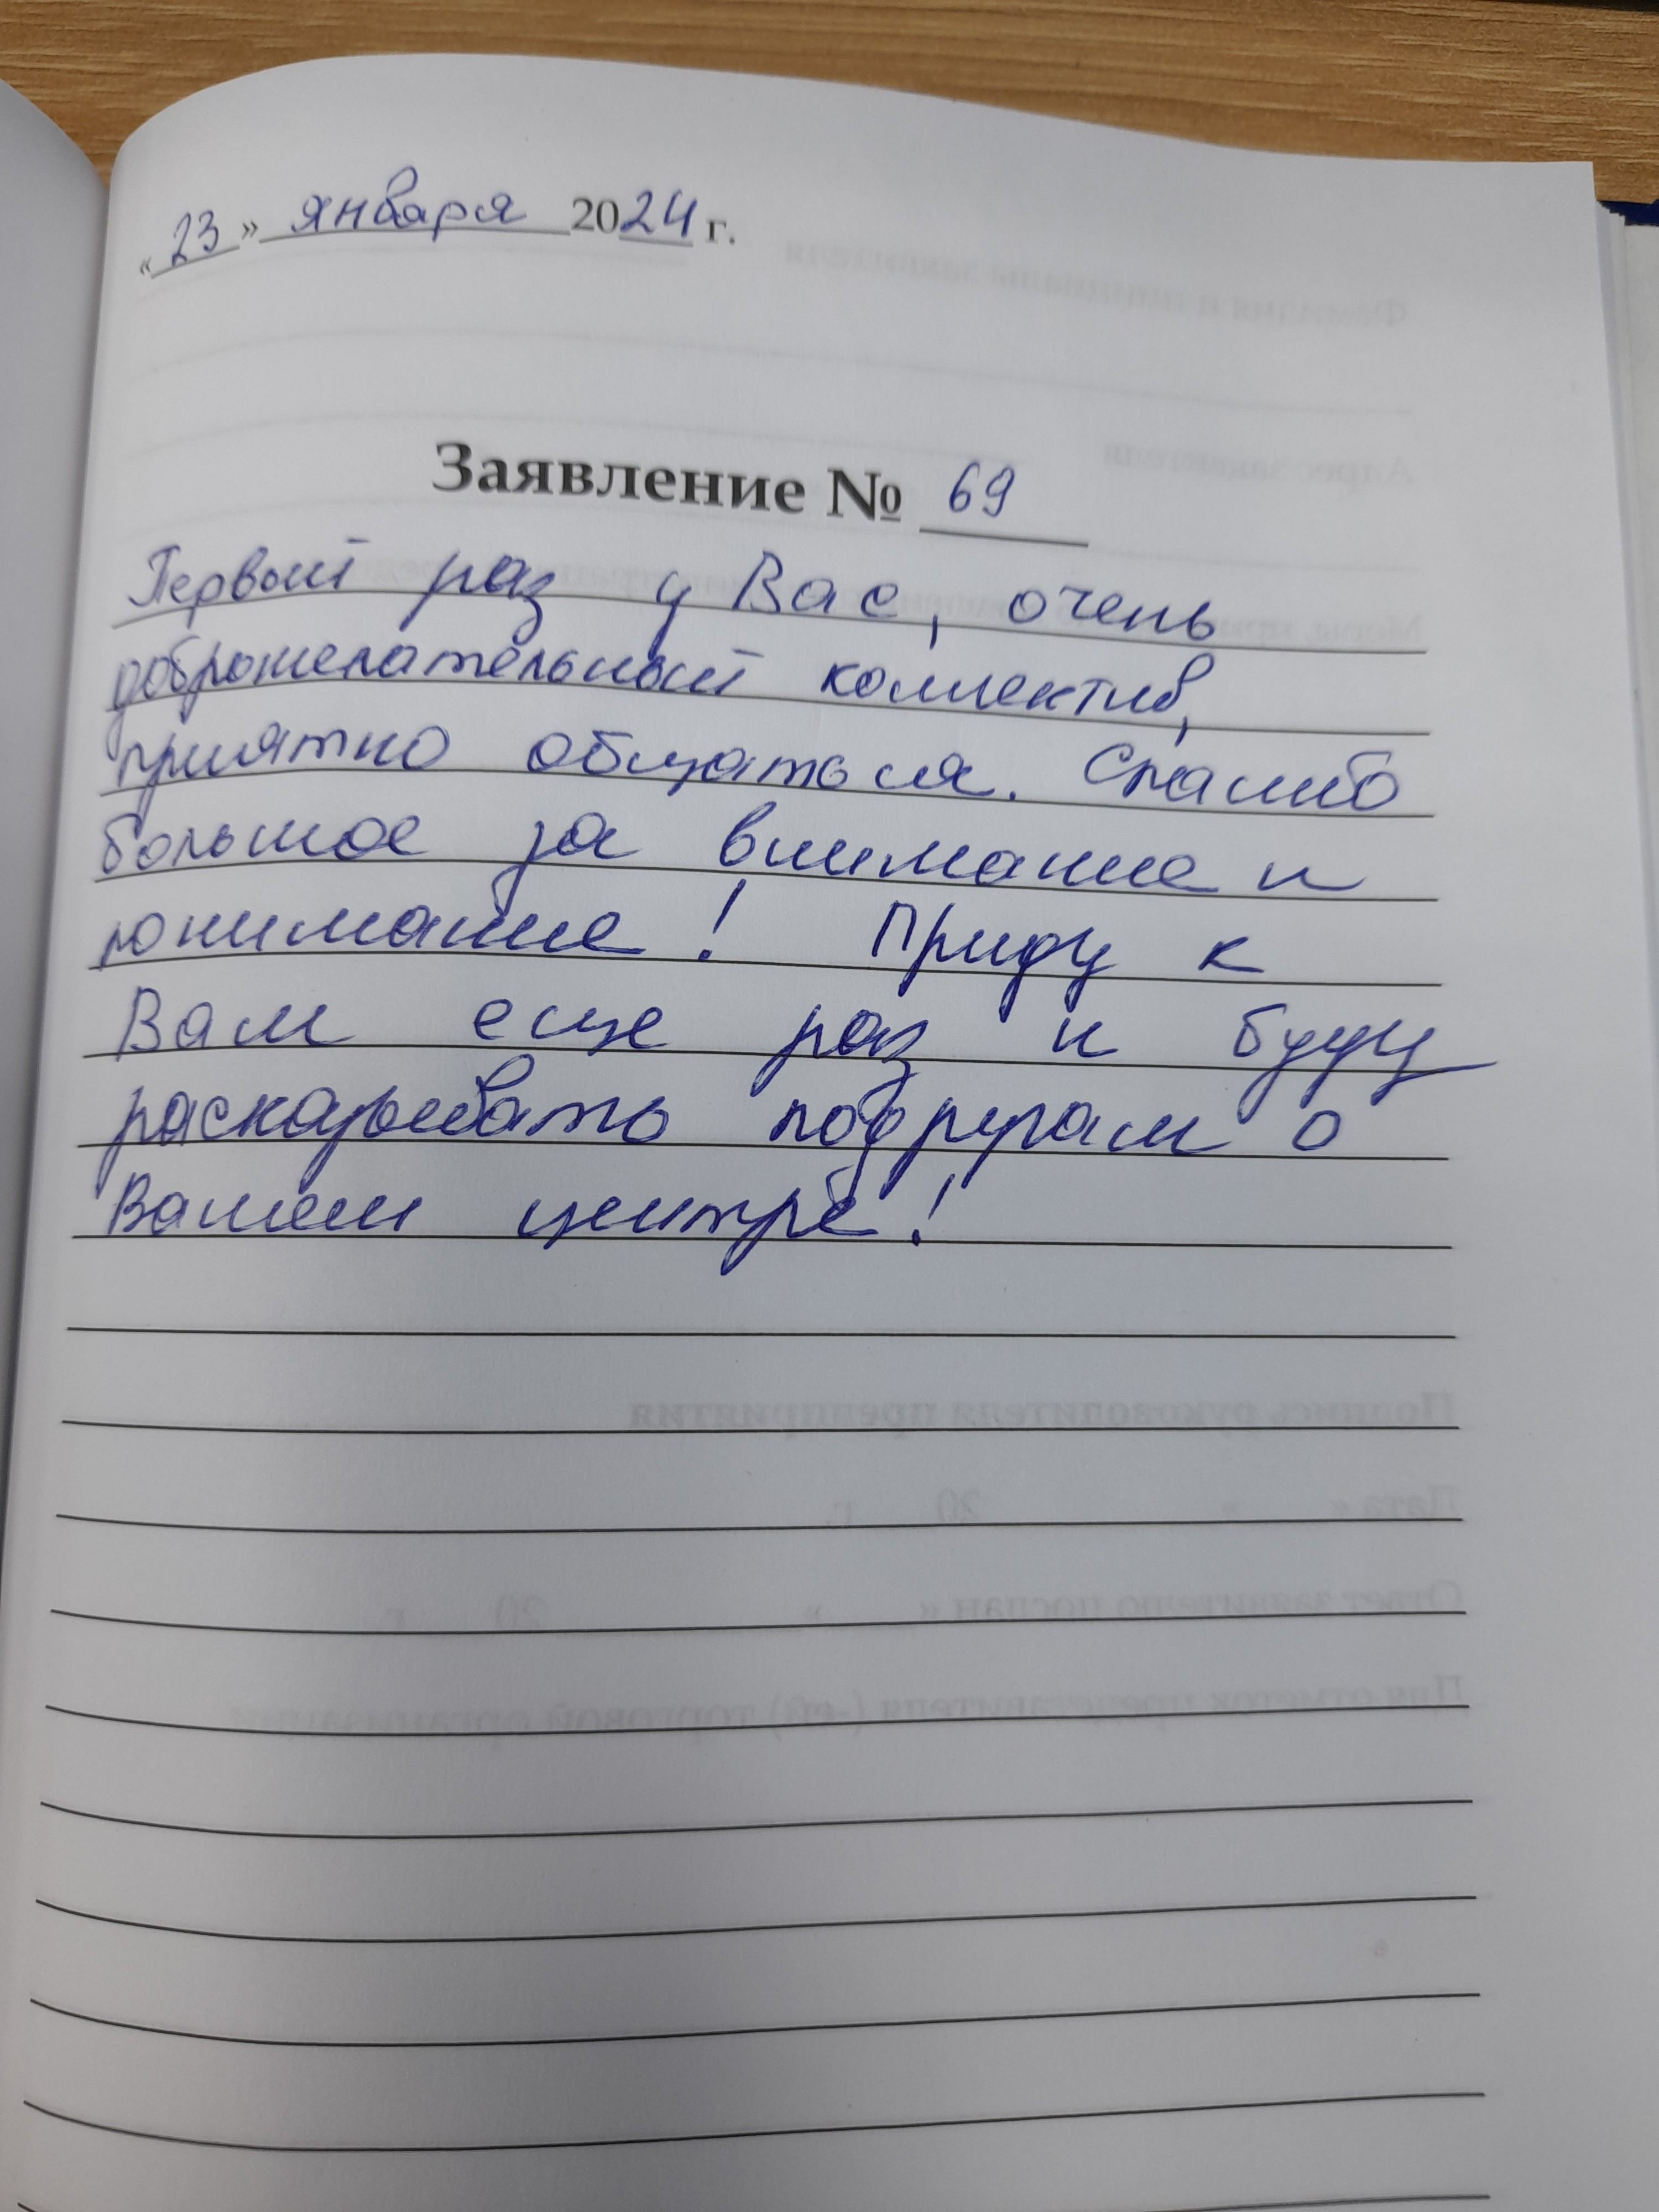 «23» января 2024 г.
Заявление № 69
Первый раз у Вас, очень
доброжелательный коллектив,
приятно общаться. Спасибо
большое за внимание и
понимание! Приду к
Вам еще раз и буду
расказывать подругам о
Вашем центре!